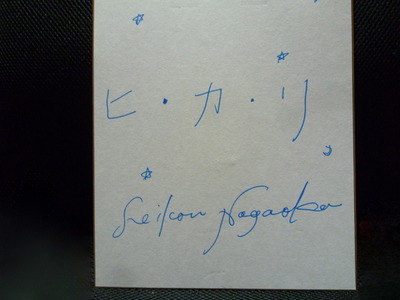 ヒ・カ・リ
Seikou Nagaoka